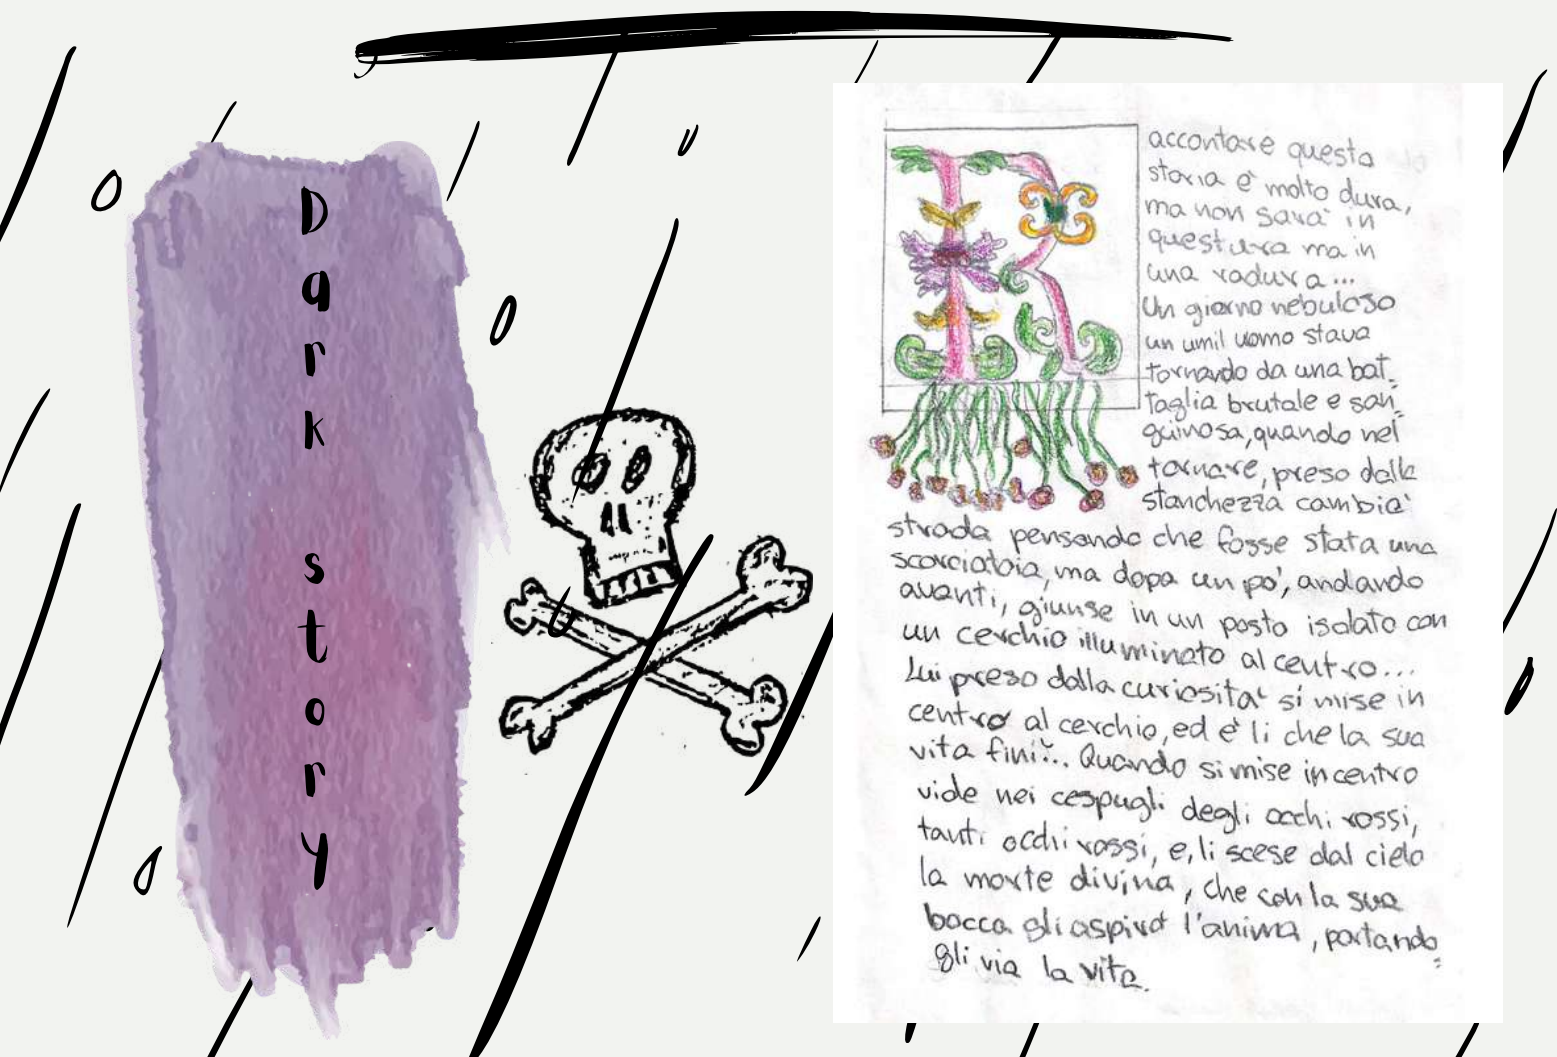 Dark story
R
accontare questa
storia è molto dura,
ma non sarà in
questura ma in
una radura...
Un giorno nebuloso
un umil uomo stava
tornando da una bat=
taglia brutale e san=
guinosa, quando nel
tornare, preso dalla
stanchezza cambià
strada pensando che fosse stata una
scorciatoia, ma dopo un po', andando
avanti, giunse in un posto isolato con
un cerchio illuminato al centro...
Lui preso dalla curiosità si mise in
centro al cerchio, ed è li che la sua
vita finì... Quando si mise in centro
vide nei cespugli degli occhi rossi,
tanti occhi rossi, e, li scese dal cielo
la morte divina, che con la sua
bocca gli aspirò l'anima, portando=
gli via la vita.